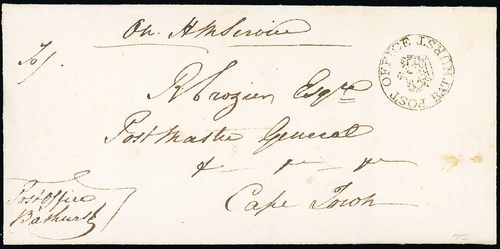 On H M Service
To/
R Crozier Esqre
Post Master General
&c &c &c
Cape Town
Post Office
Bathurst
POST OFFICE BATHURST